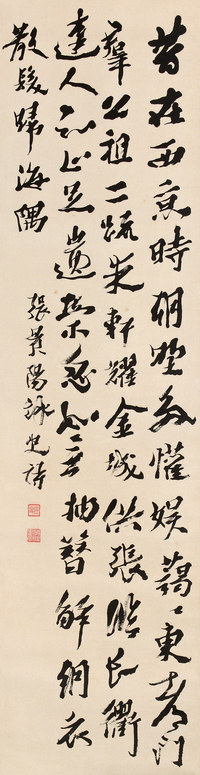 昔在西京時朝野多懽娯藹〻東都門
羣公祖二疏朱軒耀金城供張臨長衢
達人知止足遺榮忽如無抽簪解朝衣
散髮歸海隅
張景陽詠史詩